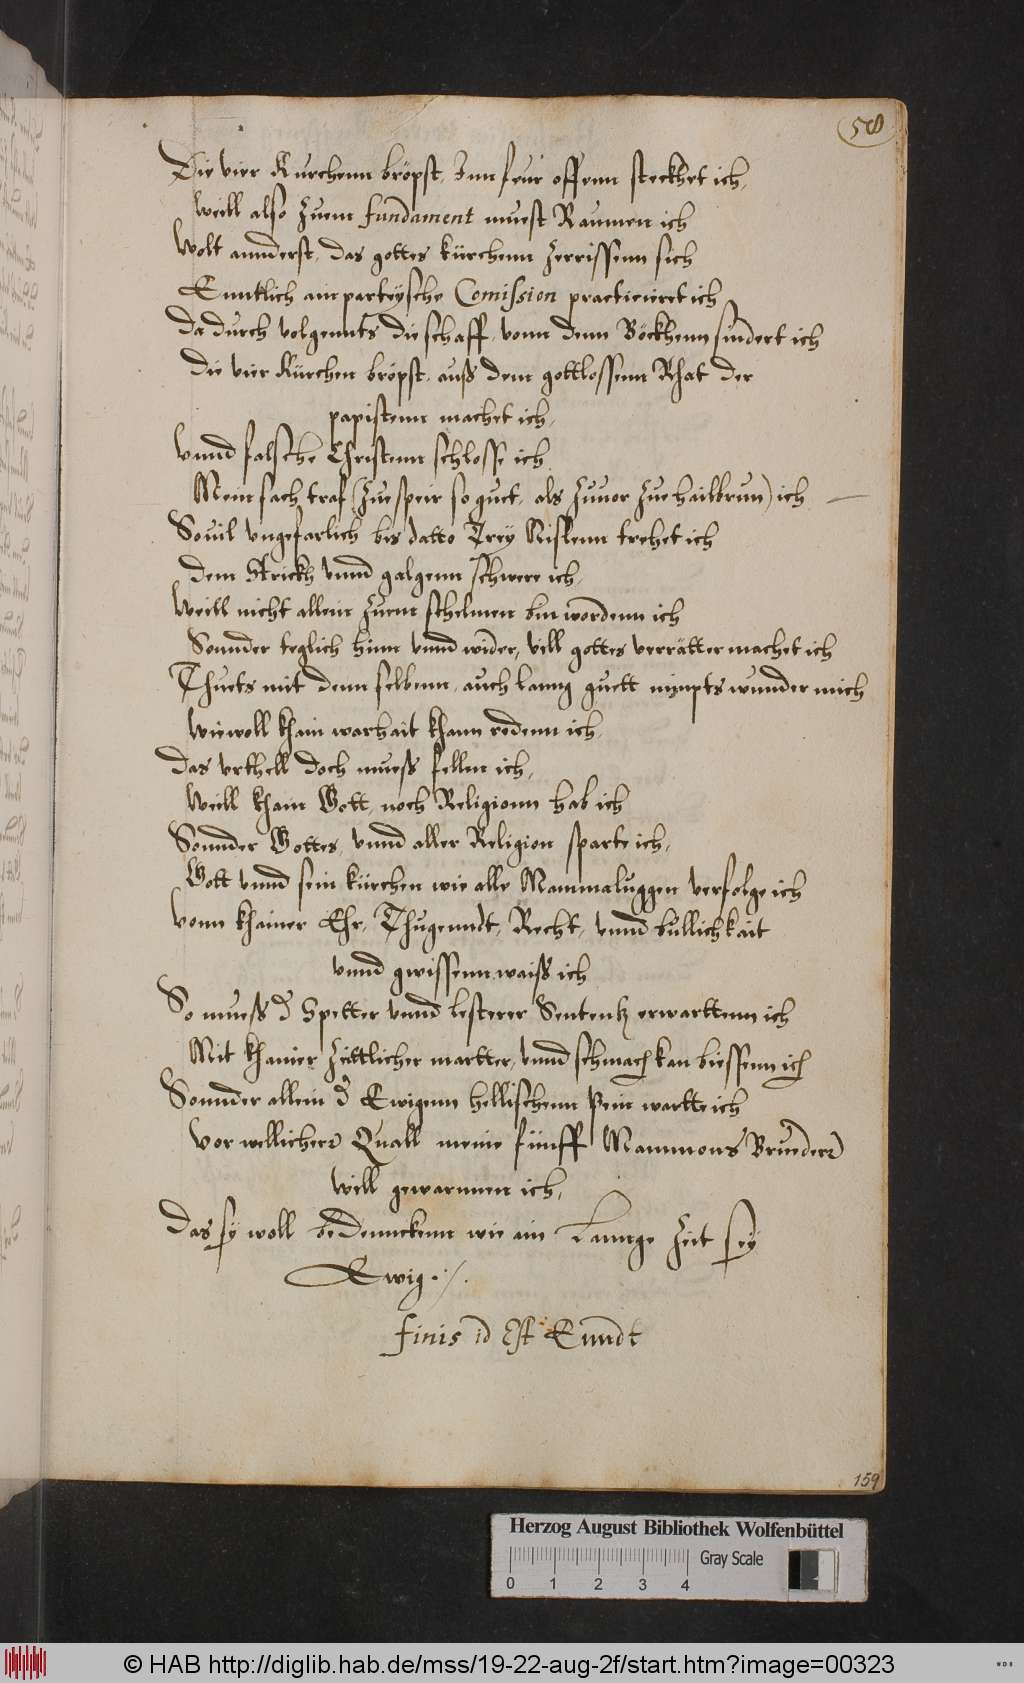 58
Die vier Kurchenn bröpst, Inn feur offenn steckhet ich,
Weill also zuem fundament muest Raumen ich
Wolt annderst, das gottes kürchenn zerrissenn sich
Enntlich ain parteysche Comission practicieret ich
Da durch volgennts die schaff, vonn denn Böckhenn sindert ich
Die vier Kürchen bröpst, auß dem gottlossenn Rhat der
papistenn machet ich,
Vnnd falsche Christenn schlosse ich
Mein sach traf (zue speir so guet, als zuuor zue hailbrun) ich
Souil vngefarlich bis datto Trey Rislenn trehet ich
Dem Strickh vnnd galgenn schwere ich,
Weill nicht allein zuem schelmen bin wordenn ich
Sonnder teglich hinn vnnd wider, vill gottes verrätter machet ich
Thuets mit denn selbenn, auch lanng guett nimpts wunder mich
Wiewoll khain warhait khann redenn ich,
Das vrthell doch muess fellen ich,
Weill khain Gott, noch Religionn hab ich
Sonnder Gottes, vnnd aller Religion sparte ich,
Gott vnnd sein kürchen wie alle Mammaluggen verfolge ich
Vonn khainer Ehr, Thugenndt, Recht, vnnd büllichkait
vnnd gwissenn waiß ich
So muess d Spetter vnnd lesterer Sententz erwarttenn ich
Mit khainer Zeittlicher martter, vnnd schmach kan biessenn ich
Sonnder allein d Ewigenn hellischenn Pein wartte ich
Vor wellicherr Quall meine fünff Mammons Bruederr
will gewarnnen ich,
Das sy woll bedennckenn wie ain Lannge Zeit sey
Ewig ./.
Finis id Est Enndt
159
Herzog August Bibliothek Wolfenbüttel
Gray Scale
0 1 2 3 4
© HAB http://diglib.hab.de/mss/19-22-aug-2f/start.htm?image=00323